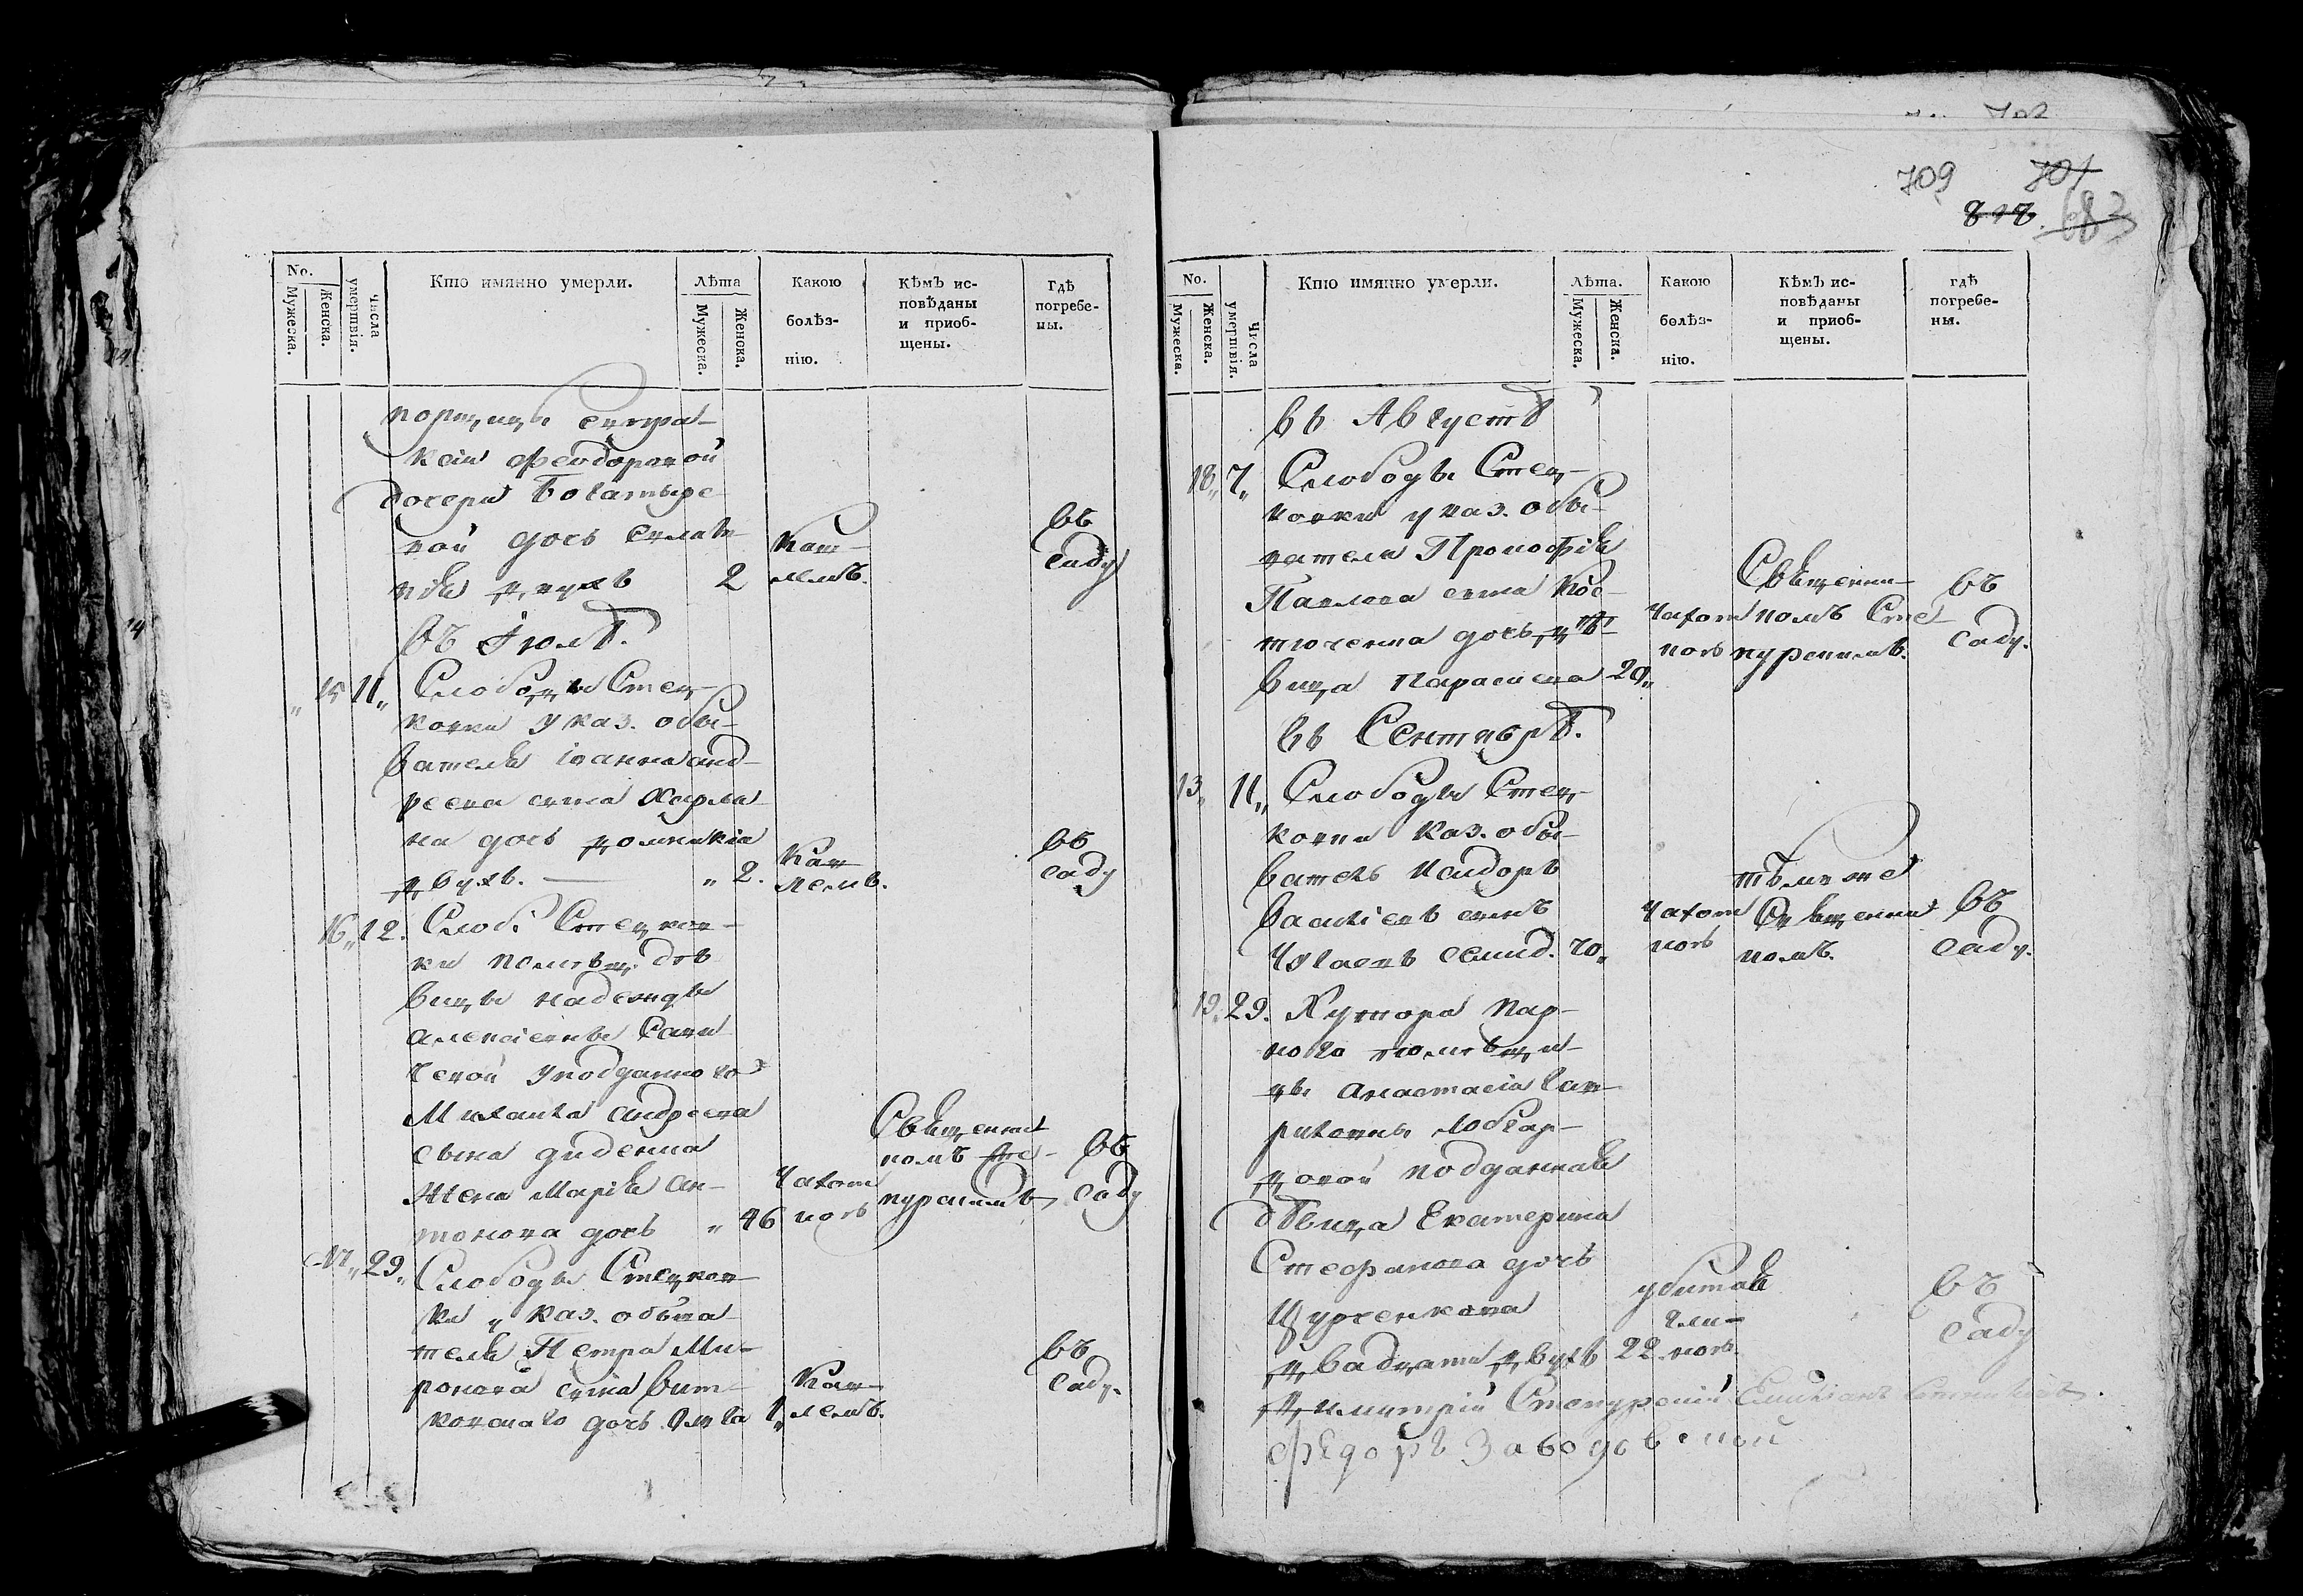 No.
Мужеска.
Женска.
Числа умертвія.
Кто имянно умерли.
Лѣта
Мужеска.
Женска.
Какою болѣз-
нію.
Кѣмъ ис-
повѣданы
и приоб-
щены.
Гдѣ
погребе-
ны.
порщицы
кіи Феодоровой
дочери Богатыре
вой дочь
2
Каш-
лемъ.
въ
саду
въ Іюлѣ.
15 11 Слободы Стец-
ковки указ. обы-
вателя Іоанна Анд-
реева сына Харла
на дочь Домникіа
двухъ. — „ 2.
Каш
лемъ.
въ
саду
16 12. Слоб. Стецков-
ки помѣщ. дѣ
вицы Надежды
Алексіевны Сави
чевой у подданного
Михаила Андреева
сына Диденка
жена Марія Ан-
тонова дочь „ 46
Чахот
кою
Священни
комъ Сте-
пурскимъ
въ
саду
17 29 Слободы Стецков
ки у каз. обыва-
теля Петра Ми-
ронова сына Вит-
ковскаго дочь 1
Каш-
лемъ.
въ
саду.
702
709 701
818. 683
No.
Мужеска.
Женска.
Числа умертвія.
Кто имянно умерли.
Лѣта.
Мужеска.
Женска.
Какою
болѣз-
нію.
Кѣмъ ис-
повѣданы
и приоб-
щены.
гдѣ
погребе-
ны.
въ Августѣ
18 7 Слободы Стец-
ковки у каз. обы-
вателя Прокофія
Павлова сына Кос-
тюченка дочь дѣ-
вица Параскева 20
Чахот
кою
Священни-
комъ Сте
пурскимъ.
въ
саду.
въ Сентябрѣ.
13 11 Слободы Стец-
ковки каз. обы-
ватель Исидоръ
Василіевъ сынъ
семид. 70
Чахот
кою
тѣмъ же
Священни
комъ.
въ
саду.
19 29. Хутора Пар-
ного помѣщи-
цы Анастасіи Гав-
риловны
подданная
дѣвица Екатерина
Стефанова дочь
Щурченкова
двадцати двухъ 22
убитая
гли-
ною.
въ
саду
Димитрій Степурскій
Федоръ Заводовской